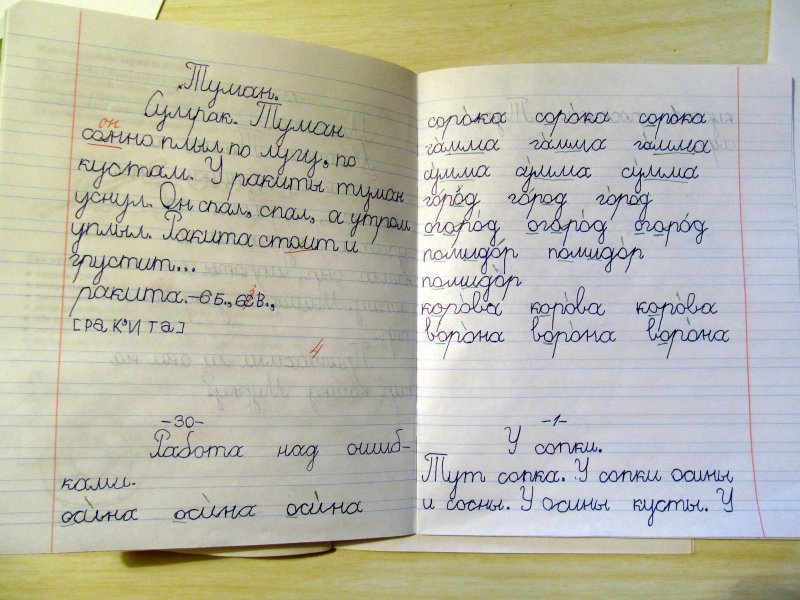 Туман.
Сумрак. Туман
он
сомнно плыл по лугу, по
кустам. У ракиты туман
уснул. Он спал, спал, а утром
уплыл. Ракита стоит и
грустит...
ракита.–6Б.,6зв.,
[рак,ита]
4
–30–
Работа над ошиб-
ками.
осина осина осина
сорока сорока сорока
гамма гамма гамма
сумма сумма сумма
город город город
огород огород огород
помидор помидор
помидор
корова корова корова
ворона ворона ворона
–1–
У сопки.
Тут сопка. У сопки осины
и сосны. У осины кусты. У